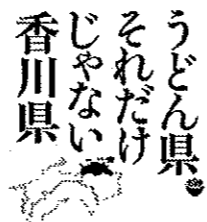 うどん県。
それだけ
じゃない
香川県